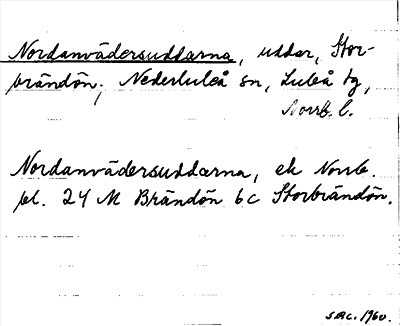 Nordanvädersuddarna, uddar, Stor-
brändön, Nederluleå sn, Luleå tg,
Norrb. l.
Nordanvädersuddarna, ek Norrb.
bl. 24 M Brändön 6c Storbrändön.
SAC. 1960.